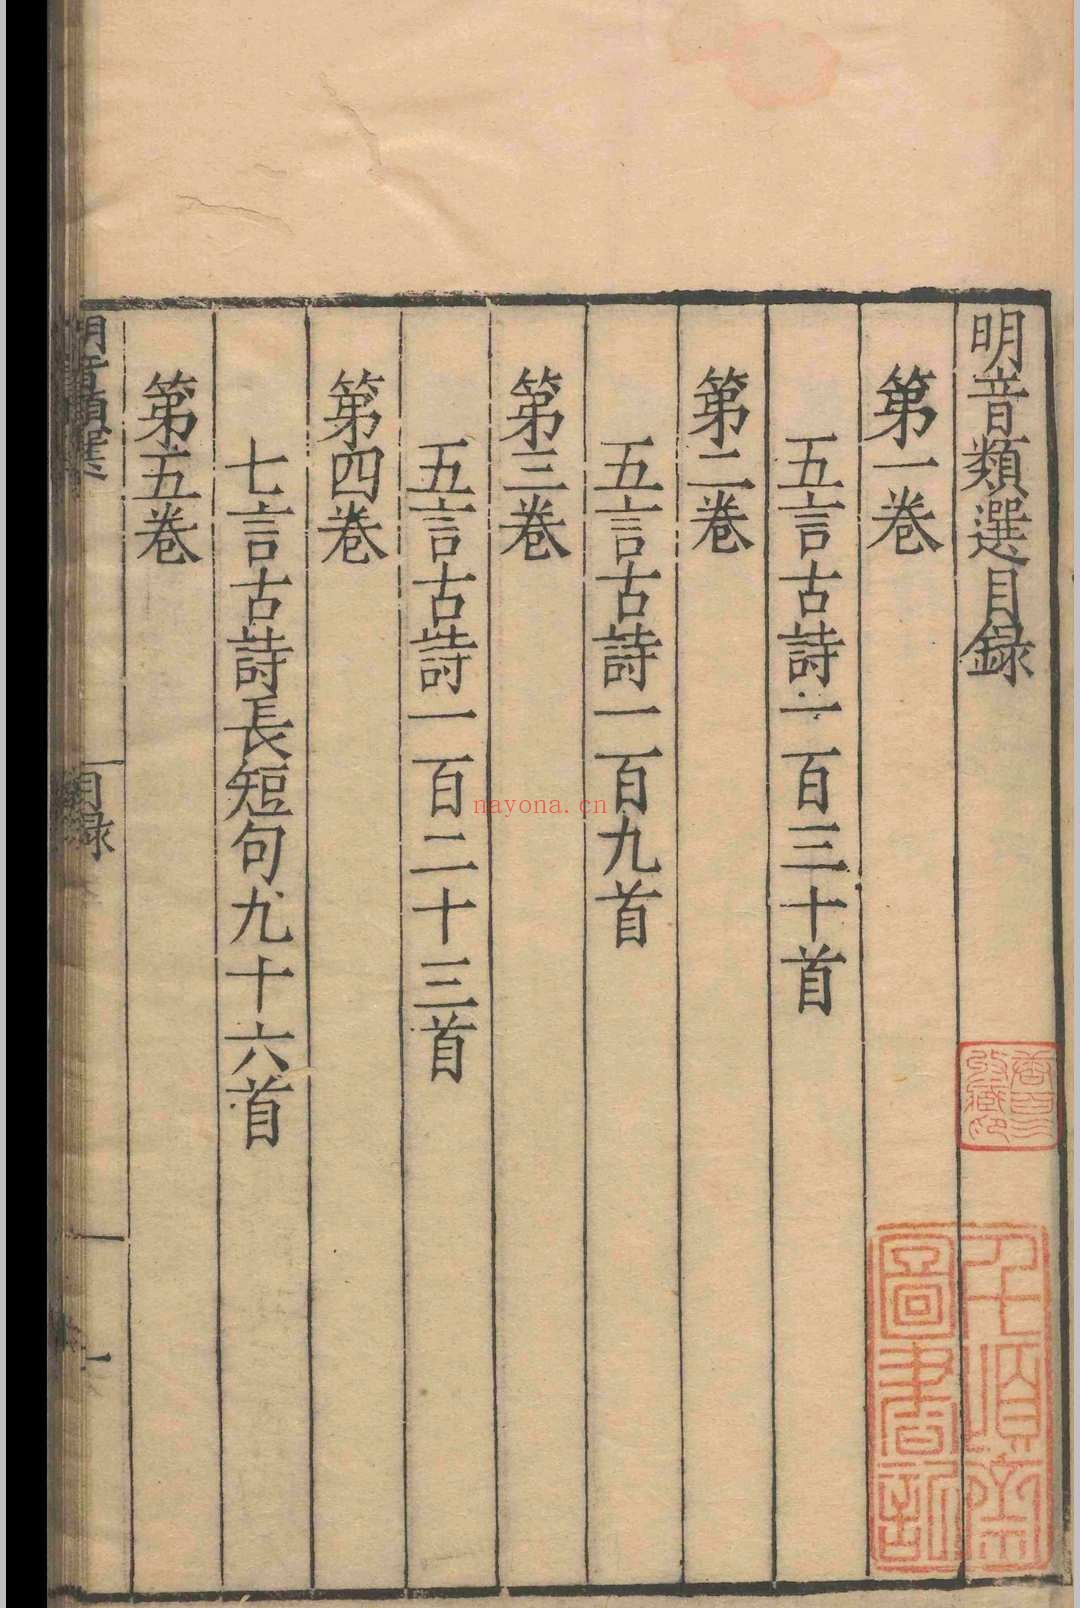 明音類選目録
第一卷
五言古詩一百三十首
第二卷
五言古詩一百九首
第三卷
五言古詩一百二十三首
第四卷
七言古詩長短句九十六首
第五卷
明音類選
目録
一
nayona.cn
圖書記